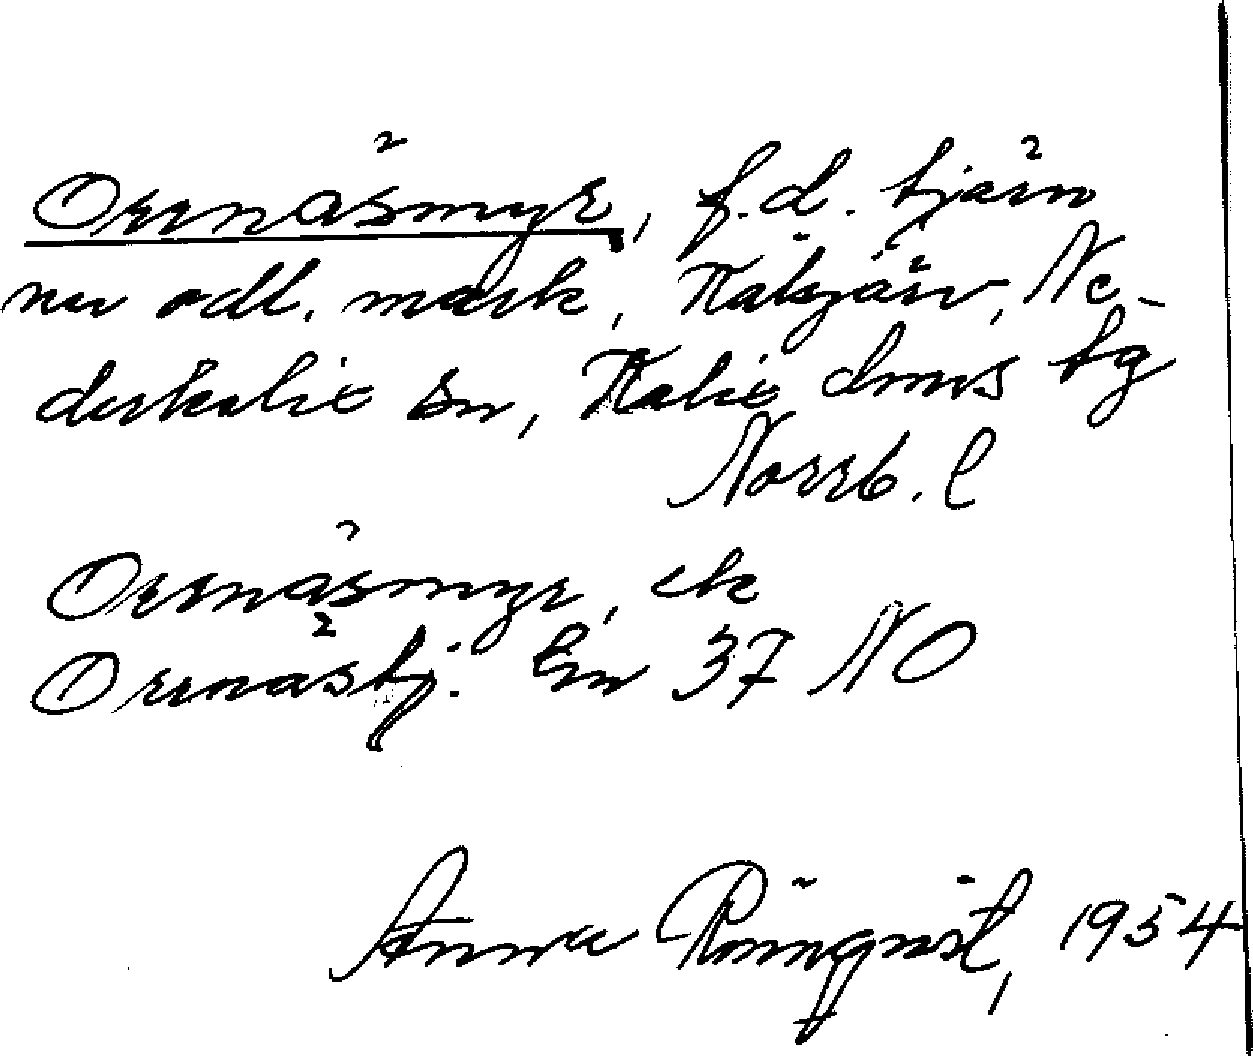 Orrnäsmyr, f.d. tjärn
nu odl. mark, Kälsjärv, Ne-
derkalix sn, Kalix doms tg
Norrb. l
Orrnäsmyr, ek
Orrnästj. En 37 NO
Anna Rönnqvist, 1954